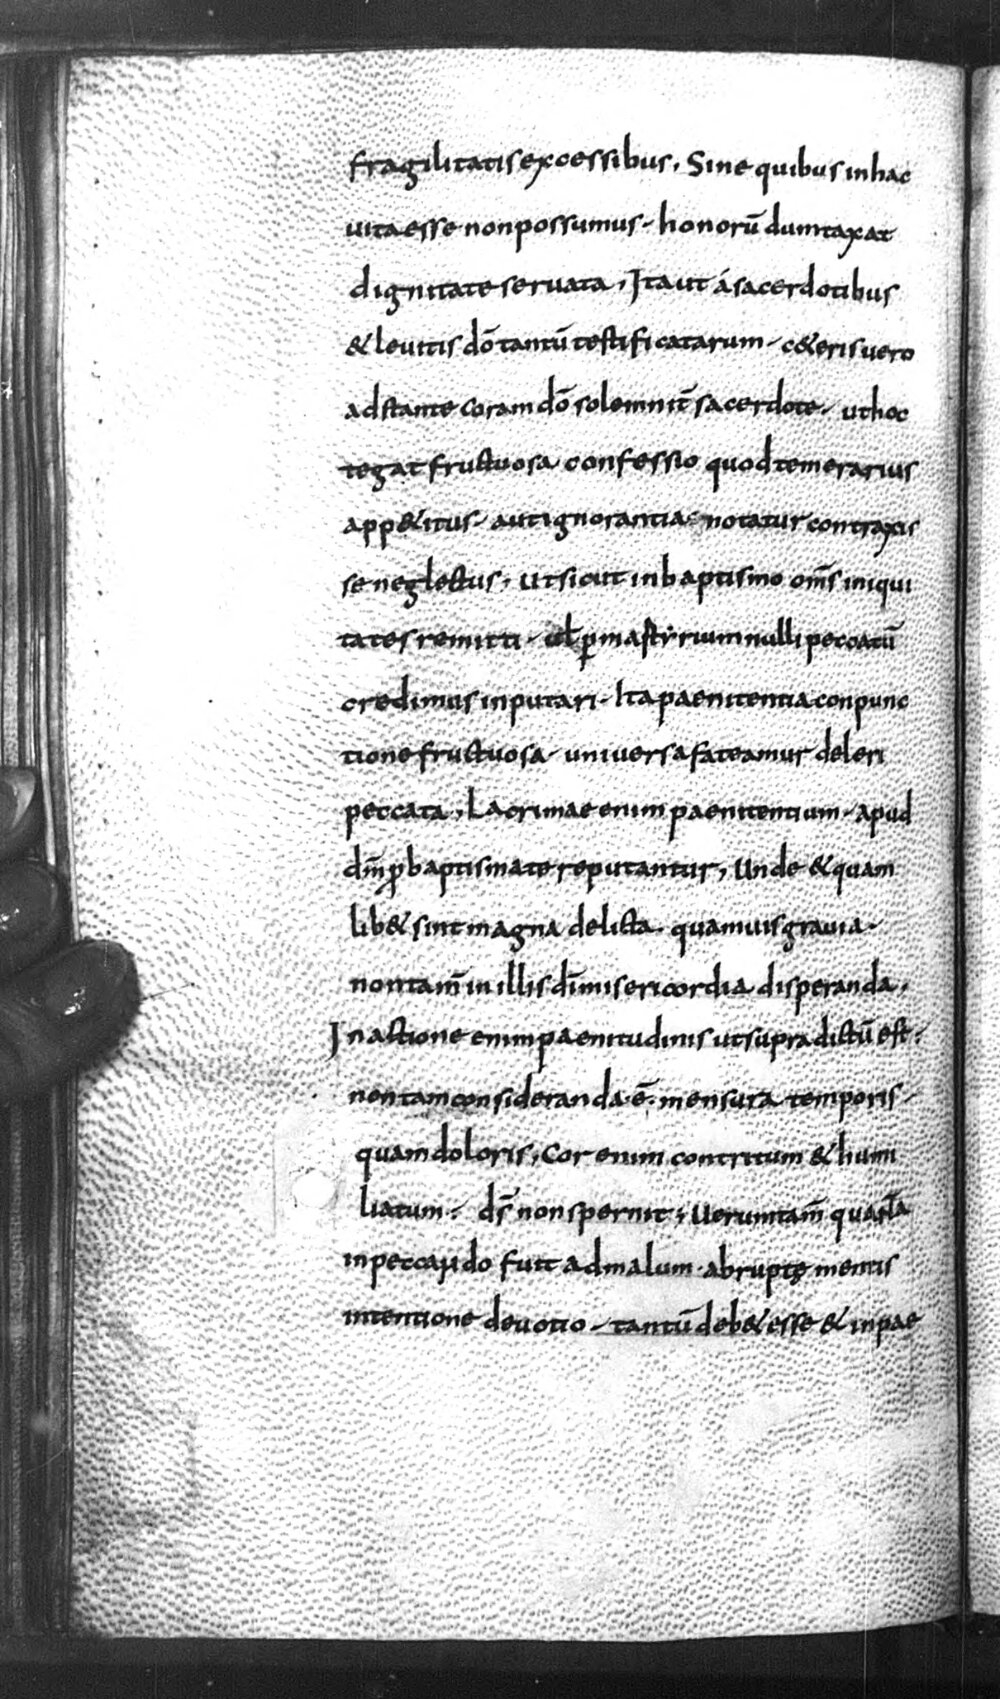 fragilitatis excessibus, Sine quibus in hac
uita esse non possumus - honorū dumtaxat
dignitate seruata, Ita ut á sacerdotibus
& leuitis dō tantū testificatarum - c&eris uero
adstante coram dō solemnit̄ sacerdote - ut hoc
tegat fructuosa confessio quod temerarius
app&itus - aut ignorantia notatur contraxis
se neglectus, ut sicut in baptismo om̄s iniqui
tates remitti - uel̄ ꝑ mastyrium nulli peccatū
credimus inputari - Ita paenitentia conpunc
tione fructuosa - uniuersa fateamur deleri
peccata, Lacrimae enim paenitentium - apud
dm̄ ꝓ baptismate reputantur, Unde & quam
lib& sint magna delicta - quamuis grauia -
non tam̄ in illis dī misericordia disperanda,
In actione enim paenitudinis ut supra dictū est:
non tam consideranda ē mensura temporis -
quam doloris, Cor enim contritum & humi
liatum: ds̄ non spernit; Uerumtam̄ quanta
in peccando fuit ad malum - abruptę mentis
intentione deuotio - tantū deb& esse & in pae